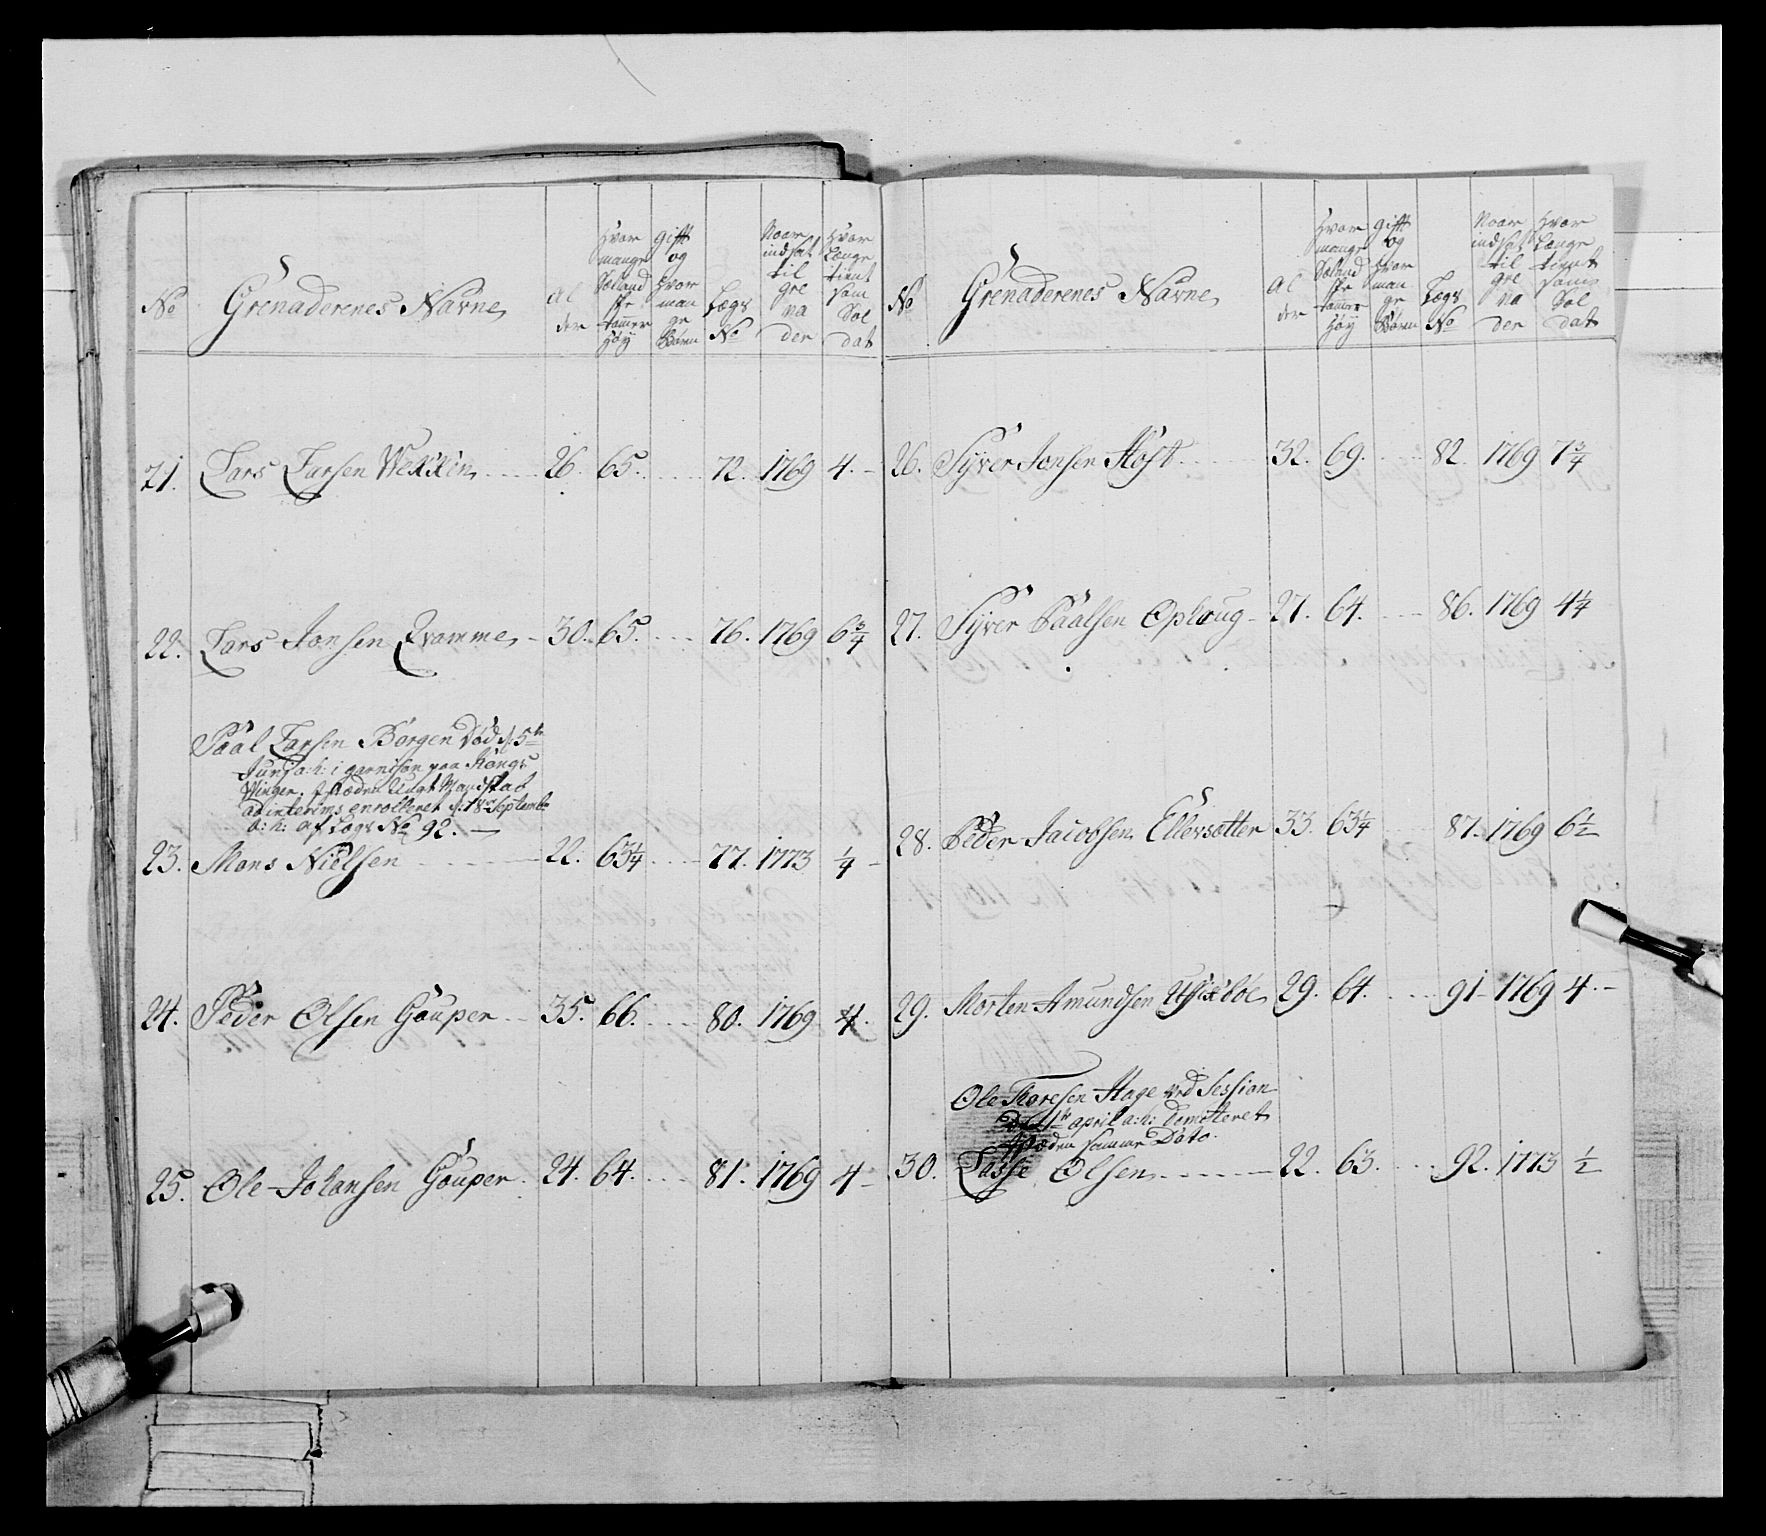 No
Grenaderenes Navne
Al
der
Hvor
mange
Sæland
ske
tommer
Høy
Gift
og
hvor
man
ge
Børn
Lægs
No
Naar
indsat
til
gre
na
der
Hvor
Længe
tient
som
Sol
dat
21. Lars Larsen Wekkin 26. 65. 72. 1769 4.
22. Lars Jonsen Qvamme 30. 65. 76. 1769 6¾
Paal Larsen Børgen Død d: 5te
Juny a:h: i garnison paa Kongs
Winger. Mandskab
ad interims enrolleret d: 18 Septembr
a:h: af Lægs No 92.
23. Mons Nielsen 22. 63¼ 77. 1773 ¼
24. Peder Olsen Gouper 35. 66. 80. 1769 4.
25. Ole Johansen Gouper 24. 64. 81. 1769 4
No
Grenaderenes Navne
Al
der
Hvor
mange
Sæland
ske
tommer
Høy
Gift
og
hvor
man
ge
Børn
Lægs
No
Naar
indsat
til
gre
na
der
Hvor
Længe
tient
som
Sol
dat
26. Syver Jonsen Høst 32. 69. 82. 1769 7¾
27. Syver Paalsen Oploug 27. 64. 86. 1769 4¼
28. Peder Jacobsen Ellevsætter 33. 63¼ 87. 1769 6½
29. Morten Amundsen 29. 64. 91 1769 4.
Ole Thoresen Hage ved Session
april a:h: demitteret
samme Dato.
30. Lasse Olsen 22. 63. 92. 1773 ½